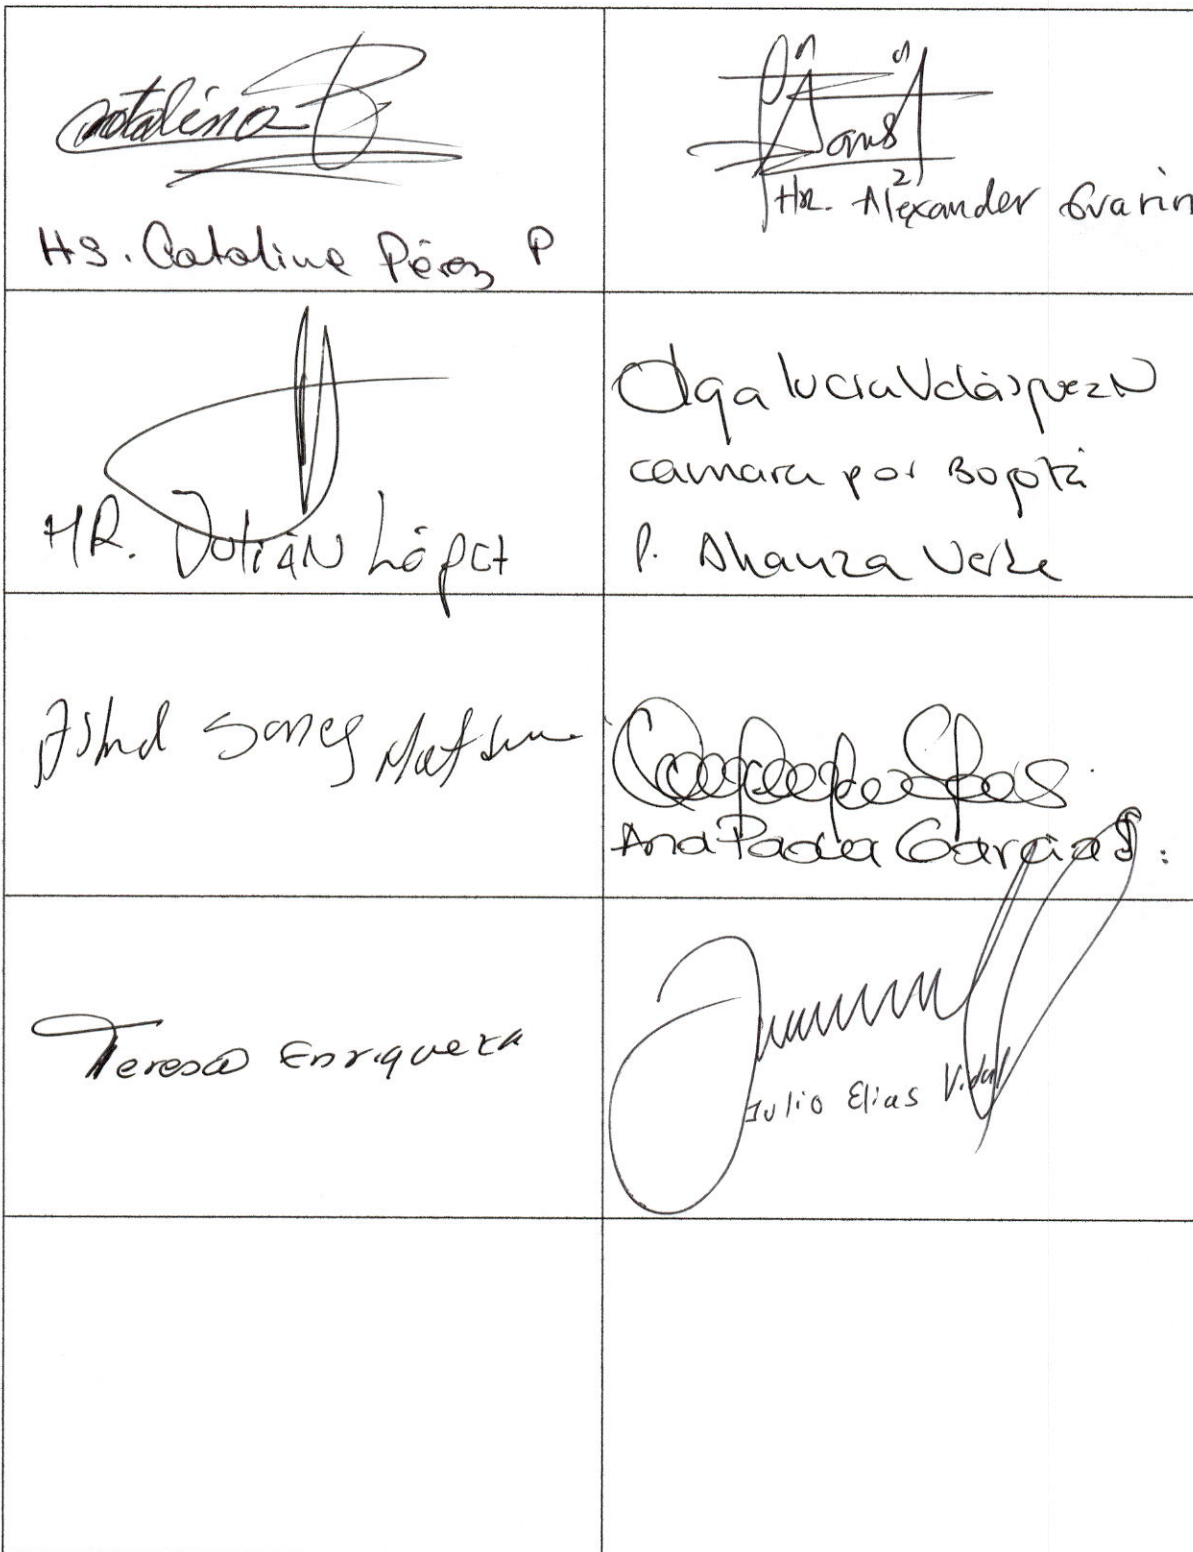 Catalina
HS. Catalina Pérez P
HR. Alexander Guarin
HR. Julián López
Olga Lucia Velásquez N
camara por Bogotá
P. Alianza Verde
Ana Paola García S.
Teresa Enríquez
Julio Elias Vidal